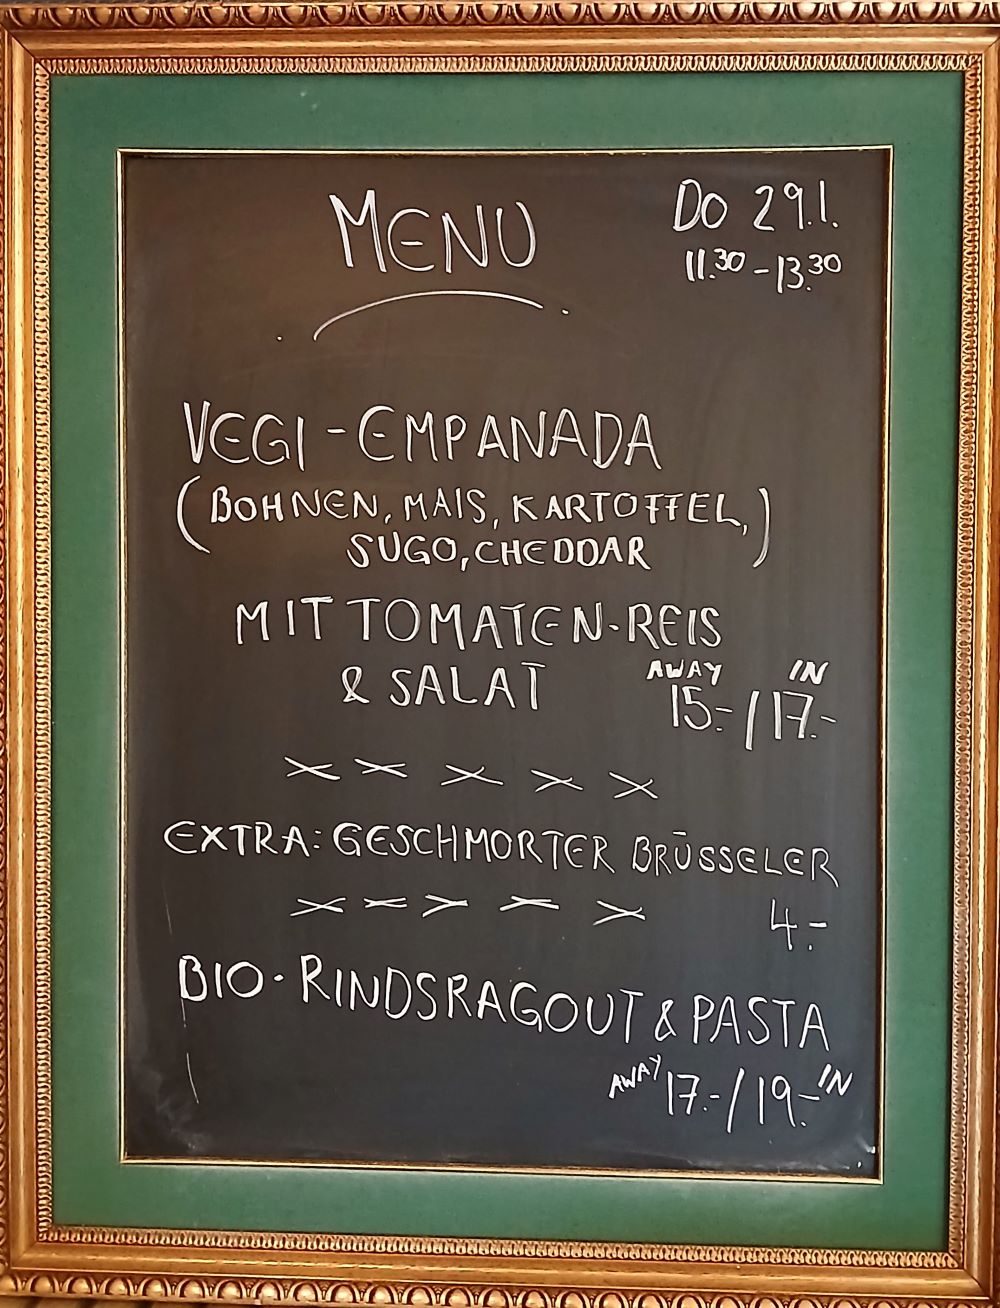 MENU
DO 29.1.
11.30 - 13.30
VEGI - EMPANADA
(BOHNEN, MAIS, KARTOFFEL,
SUGO, CHEDDAR)
MIT TOMATEN-REIS
& SALAT
AWAY IN
15.- / 17.-
EXTRA: GESCHMORTER BRÜSSELER
4.-
BIO-RINDSRAGOUT & PASTA
AWAY 17.- / 19.- IN